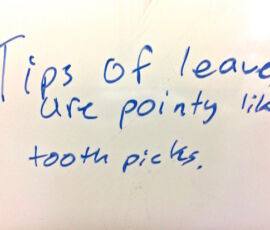 Tips of leave
are pointy lik
tooth picks.